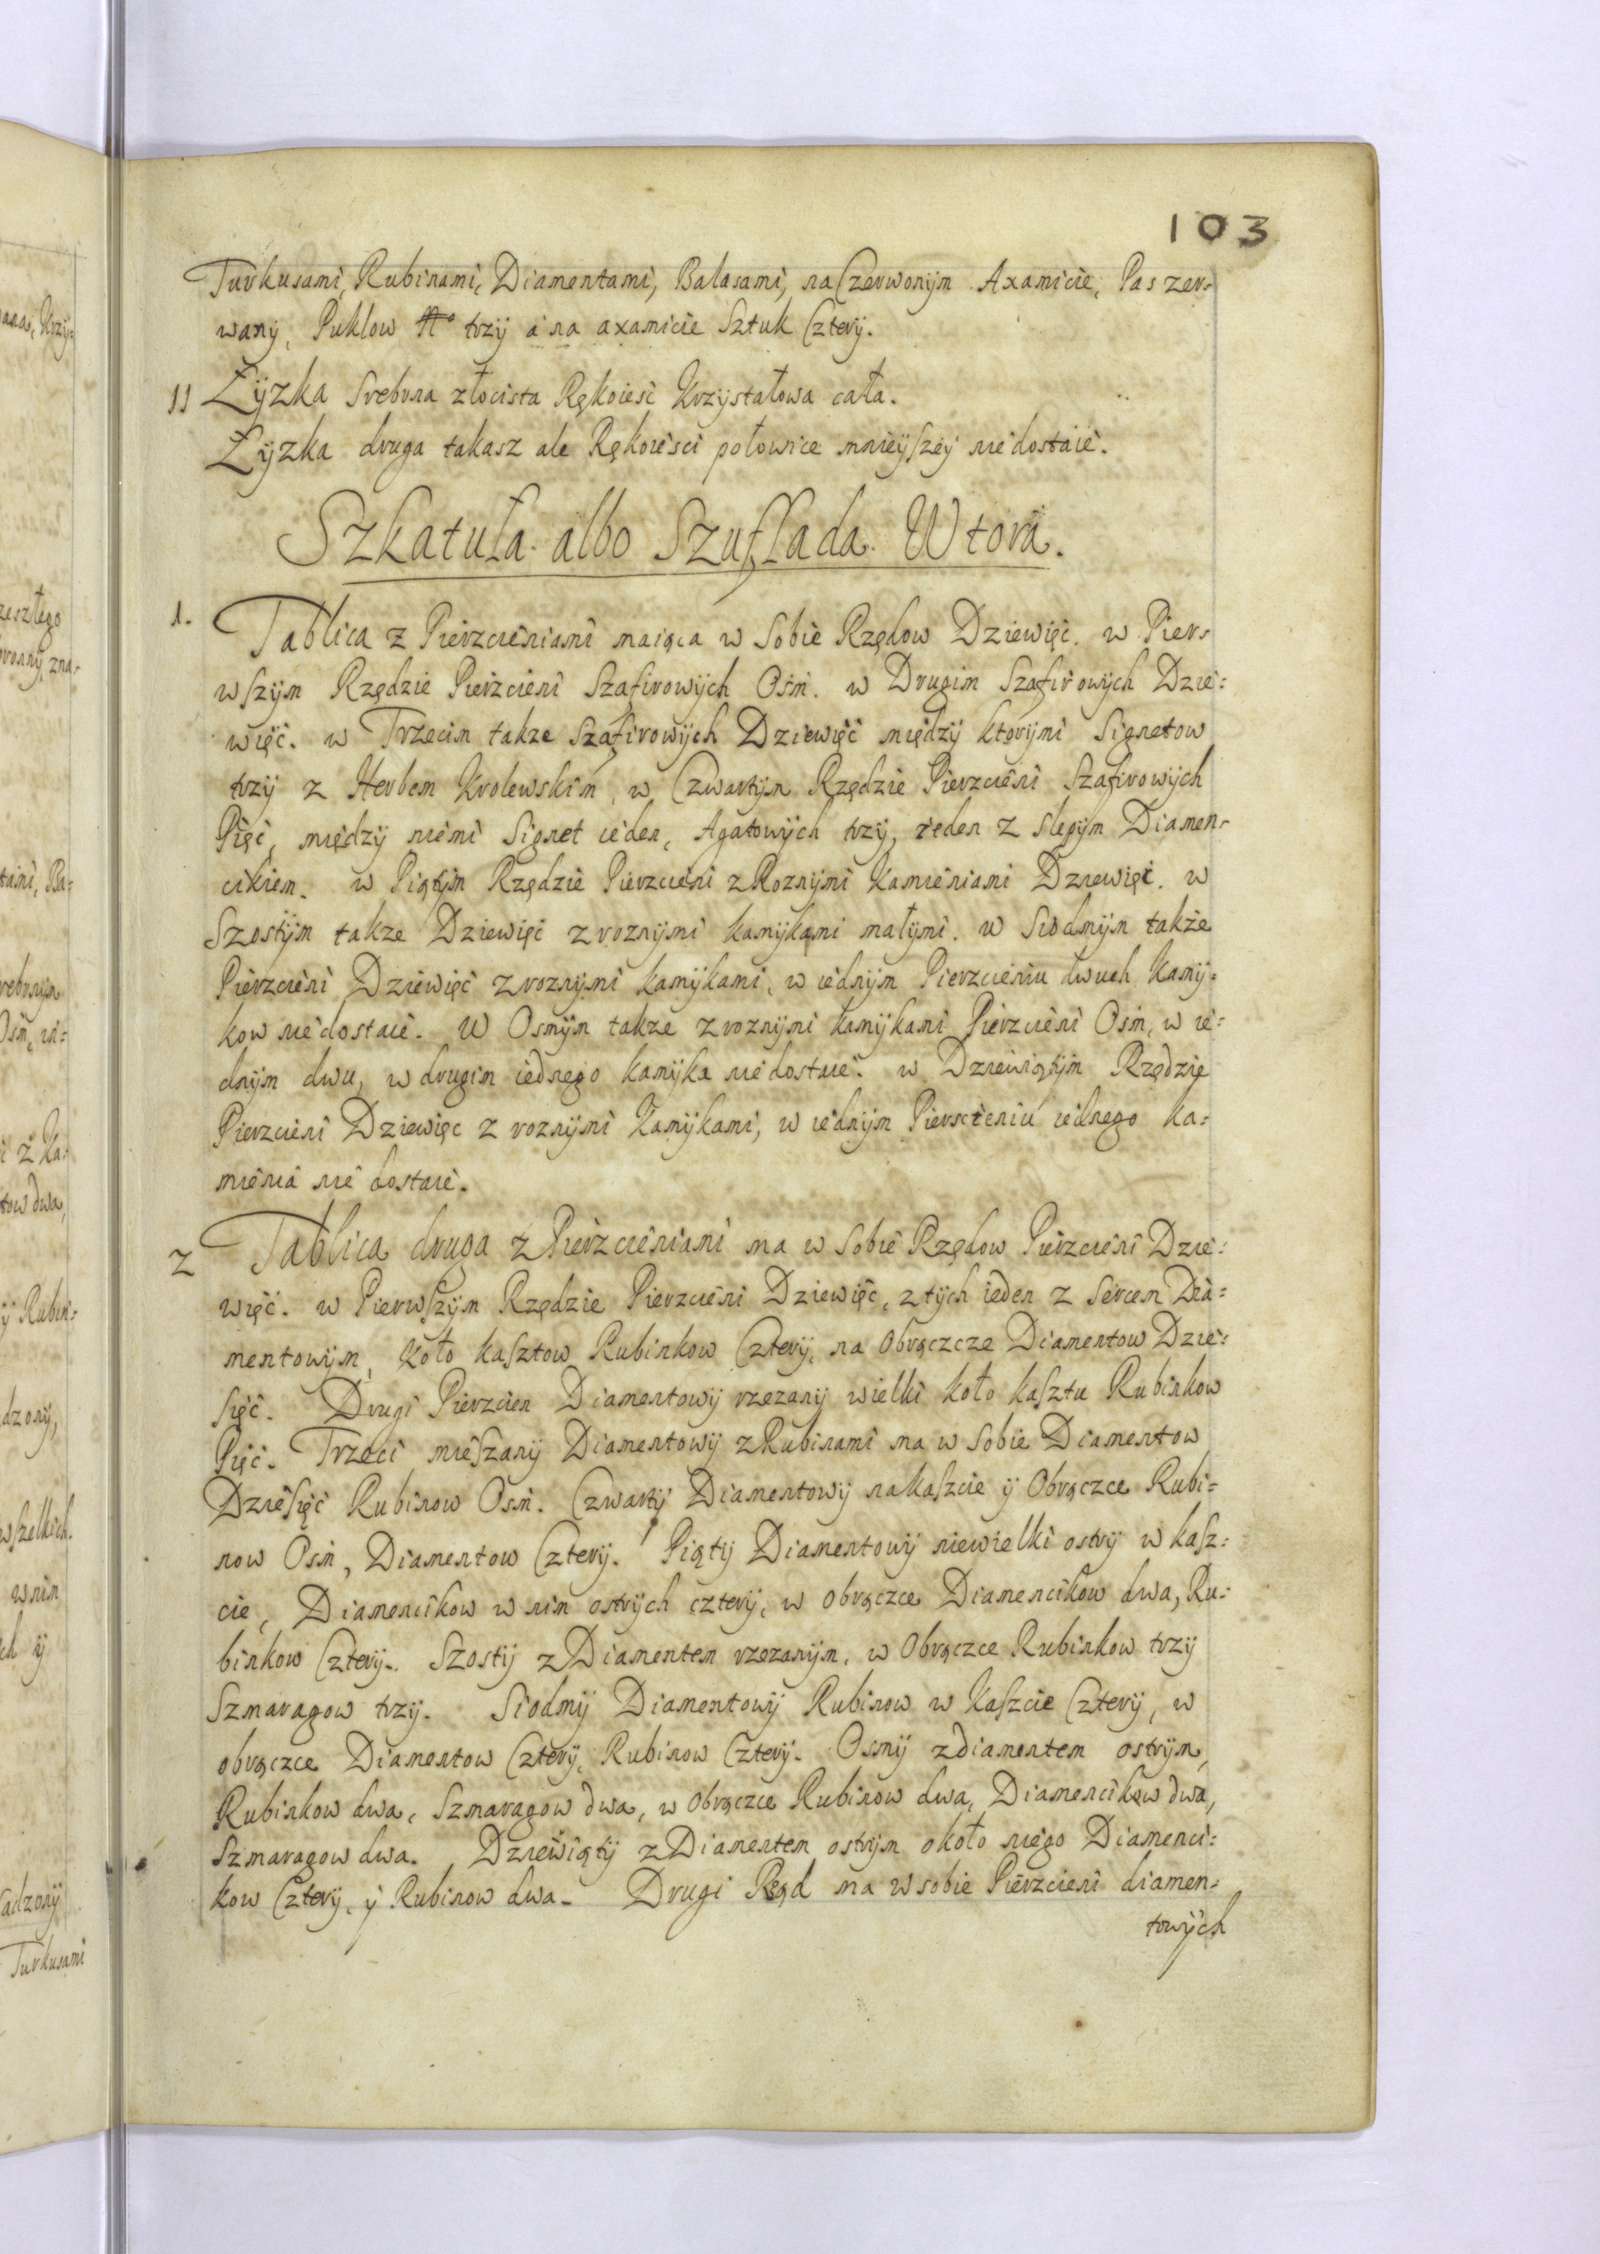 103
Turkusami, Rubinami, Diamentami, Balasami, na Czerwonym Axamicie, Pas zer-
wany, Puklow No trzy a na axamicie Sztuk Cztery.
11 Łyzka Srebrna złocista Rękoiesc Krzystałowa cała.
Łyzka druga takasz ale Rękoiesci połowice mnieyszey niedostaie.
Szkatuła albo Szuflada Wtora.
1. Tablica z Pierzcieniami maiąca w Sobie Rzędow Dziewięć. w Pier-
wszym Rzędzie Pierzcieni Szafirowych Ośm. w Drugim Szafirowych Dzie-
więć. w Trzecim takze Szafirowych Dziewięć między ktorymi Signetow
trzy z Herbem Krolewskim, w Czwartym Rzędzie Pierzcieni Szafirowych
Pięć, między niemi Signet ieden, Agatowych trzy, ieden z slepym Diamen-
cikiem. w Piątym Rzędzie Pierzcieni z Roznymi Kamieniami Dziewięć. w
Szostym takze Dziewięć z roznymi kamykami małymi. w Siodmym takze
Pierzcieni Dziewięć z roznymi kamykami, w iednym Pierzcieniu dwuch Kamy-
kow niedostaie. W Osmym takze z roznymi kamykami Pierzcieni Ośm, w ie-
dnym dwu, w drugim iednego kamyka niedostaie. w Dziewiątym Rzędzie
Pierzcieni Dziewięc z roznymi Kamykami, w iednym Piersccieniu iednego ka-
mienia nie dostaie.
2 Tablica druga z Pierzcieniami ma w Sobie Rzędow Pierzcieni Dzie-
więć. w Pierwszym Rzędzie Pierzcieni Dziewięc, z tych ieden z Sercem Dia-
mentowym, koło kasztow Rubinkow Cztery, na Obrączcze Diamentow Dzie-
sięć. Drugi Pierzcien Diamentowy rzezany wielki koło kasztu Rubinkow
Pięć. Trzeci mieszany Diamentowy z Rubinami ma w Sobie Diamentow
Dziesięć Rubinow Ośm. Czwarty Diamentowy na kaszcie y Obrączce Rubi-
now Ośm, Diamentow Cztery. Piąty Diamentowy niewielki ostry w kasz-
cie, Diamencikow w nim ostrych cztery, w obrączce Diamencikow dwa, Ru-
binkow Cztery. Szosty z Diamentem rzezanym, w Obrączce Rubinkow trzy
Szmaragow trzy. Siodmy Diamentowy Rubinow w Kaszcie Cztery, w
obrączce Diamentow Cztery, Rubinow Cztery. Osmy z diamentem ostrym,
Rubinkow dwa, Szmaragow dwa, w Obrączce Rubinow dwa, Diamencikow dwa,
Szmaragow dwa. Dziewiąty z Diamentem ostrym około niego Diamenci-
kow Cztery, y Rubinow dwa. Drugi Rząd ma w sobie Pierzcieni diamen-
towych